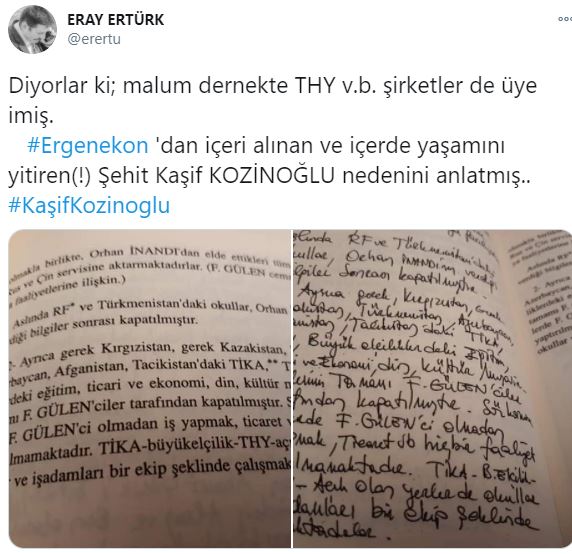 ERAY ERTÜRK
@erertu
Diyorlar ki; malum dernekte THY v.b. şirketler de üye
imiş.
#Ergenekon 'dan içeri alınan ve içerde yaşamını
yitiren(!) Şehit Kaşif KOZİNOĞLU nedenini anlatmış..
#KaşifKozinoglu
olmakla birlikte, Orhan İNANDI'dan elde ettikleri tüm
ve Çin servisine aktarmaktadırlar. (F. GÜLEN cema
faaliyetlerine ilişkin.)
Aslında RF* ve Türkmenistan'daki okullar, Orhan
diği bilgiler sonrası kapatılmıştır.
2- Ayrıca gerek Kırgızistan, gerek Kazakistan,
baycan, Afganistan, Tacikistan'daki TİKA,** T
deki eğitim, ticari ve ekonomi, din, kültür m
F. GÜLEN'ciler tarafından kapatılmıştır. S
F. GÜLEN'ci olmadan iş yapmak, ticaret
lmamaktadır. TİKA-büyükelçilik-THY-aç
ve işadamları bir ekip şeklinde çalışmak
RF ve Türkmenistan'daki
okullar, Orhan İNANDI'nın verdiği
bilgiler sonrası kapatılmıştır.
Ayrıca gerek, Kırgızistan, Gerek
Türkmenistan, Azerbaycan,
Tacikistan'daki TİKA,
Büyükelçiliklerdeki Eğitim,
ve Ekonomi, din, kültür
TAMAMI F. GÜLEN'ciler
tarafından kapatılmıştır.
F. GÜLEN'ci olmadan
Ticaret vb hiçbir faaliyet
TİKA-B.Elçilik-
Açık olan yerlerde okullar
bir ekip şeklinde